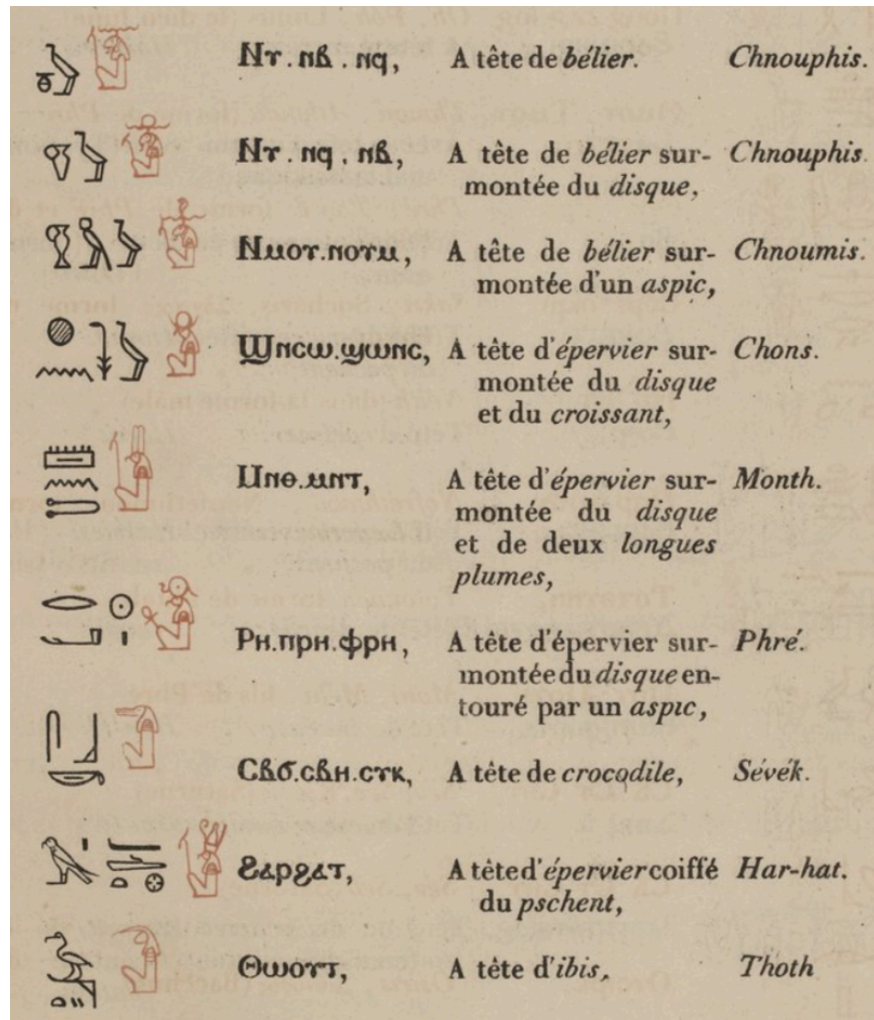 Ⲛⲩ . ⲛⲃ . ⲛϥ, A tête de bélier. Chnouphis.
Ⲛⲩ . ⲛϥ . ⲛⲃ, A tête de bélier sur- Chnouphis.
montée du disque,
Ⲛⲙⲟⲩ.ⲛⲟⲩⲙ, A tête de bélier sur- Chnoumis.
montée d'un aspic,
Ϣⲛⲥⲱ.ϣⲱⲛⲥ, A tête d'épervier sur- Chons.
montée du disque
et du croissant,
Ⲙⲛⲑ.ⲙⲛⲧ, A tête d'épervier sur- Month.
montée du disque
et de deux longues
plumes,
Ⲣⲏ.ⲡⲣⲏ.ⲫⲣⲏ, A tête d'épervier sur- Phré.
montée du disque en-
touré par un aspic,
Ⲥⲃϭ.ⲥⲃⲏ.ⲥⲩⲕ, A tête de crocodile, Sévék.
Ϩⲁⲣϩⲁⲧ, A tête d'épervier coiffé Har-hat.
du pschent,
Ⲑⲱⲟⲩⲧ, A tête d'ibis, Thoth